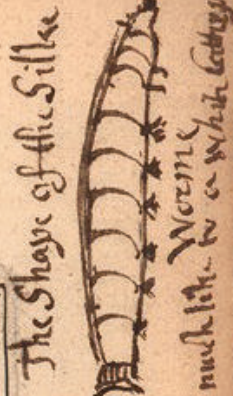 The Shape of the Silke
Worme
much like to a whit Catter